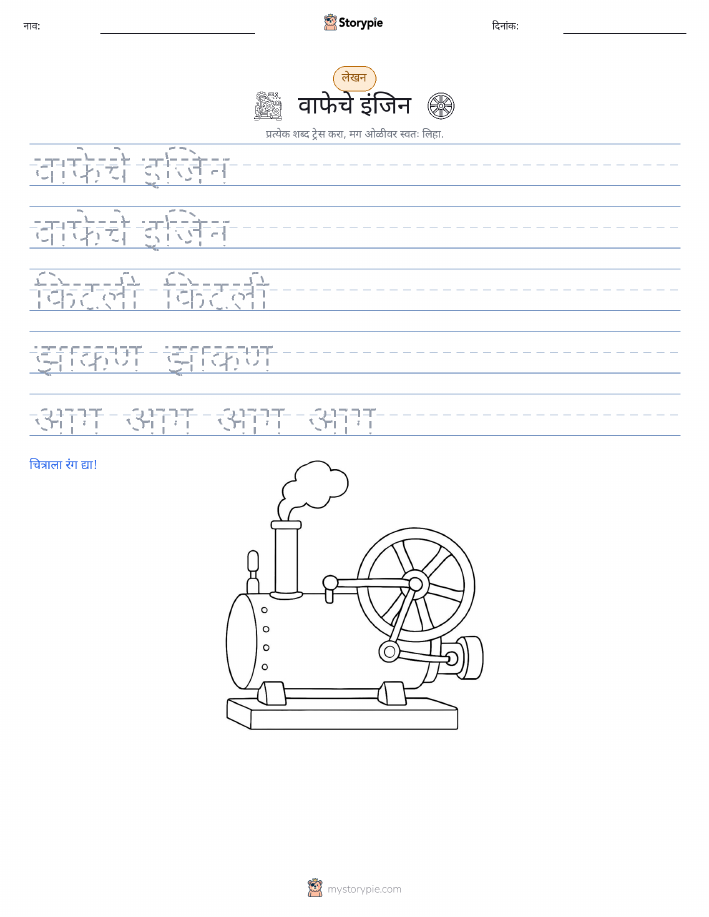 नाव:
Storypie
दिनांक:
लेखन
वाफेचे इंजिन
प्रत्येक शब्द ट्रेस करा, मग ओळीवर स्वतः लिहा.
वाफेचे इंजिन
वाफेचे इंजिन
किटली किटली
झाकण झाकण
आग आग आग आग
चित्राला रंग द्या!
mystorypie.com